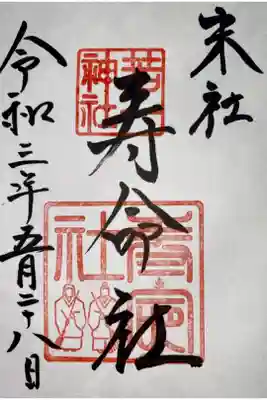 末社
寿命社
令和三年五月二十八日
神社